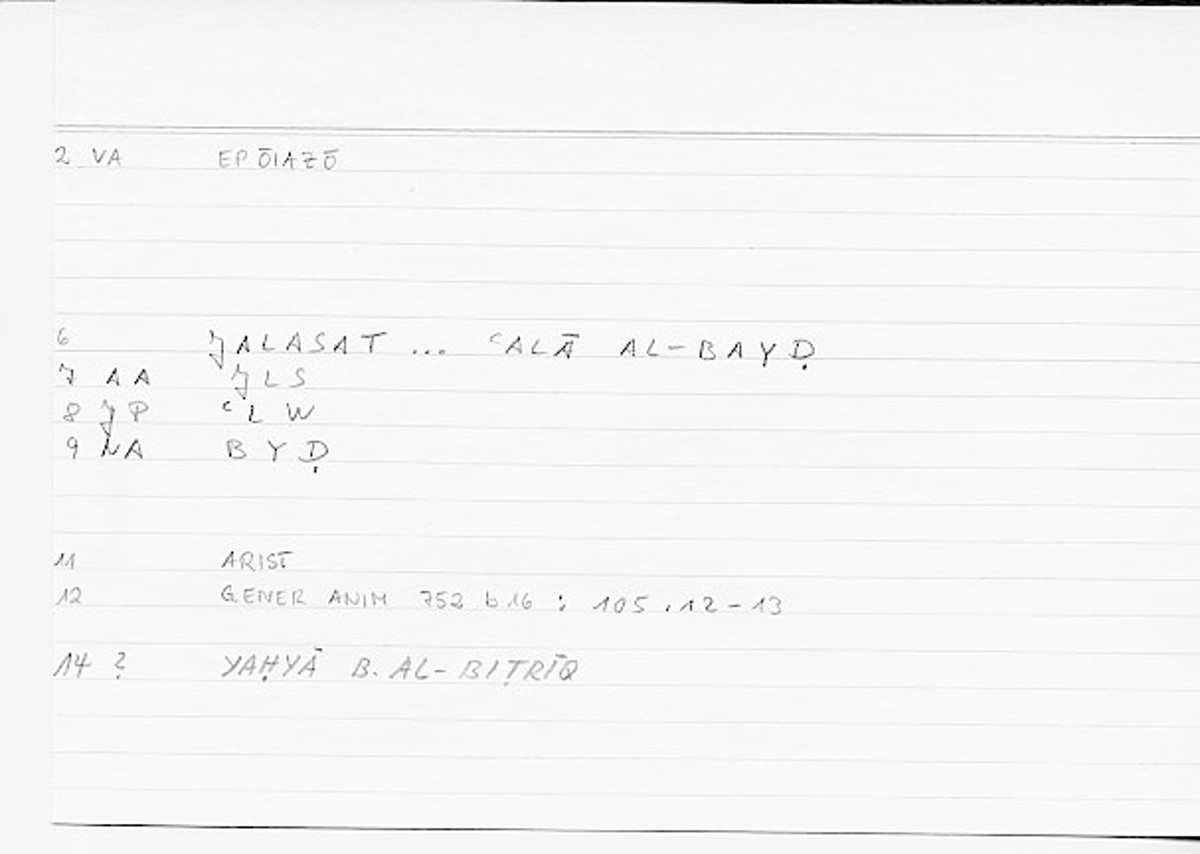 2 VA EPŌIAZŌ
6 JALASAT ... ʿALĀ AL-BAYḌ
7 AA JLS
8 JP ʿLW
9 NA BYḌ
11 ARIST
12 GENER ANIM 752 b 16 : 105.12-13
14 ? YAḤYĀ B. AL-BIṬRĪQ